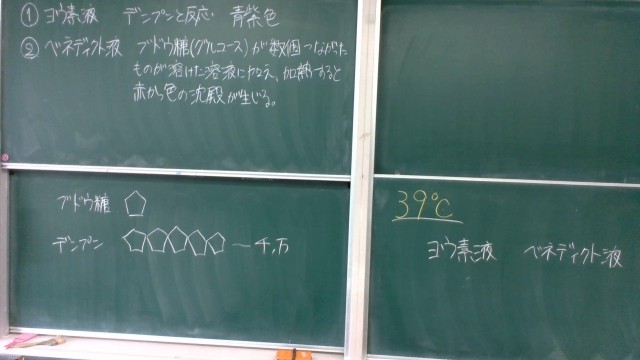 ① ヨウ素液 デンプンと反応 青紫色
② ベネディクト液 ブドウ糖(グルコース)が数個つながった
ものが溶けた溶液に加え、加熱すると
赤かっ色の沈殿が生じる。
ブドウ糖
デンプン ー千,万
39℃
ヨウ素液 ベネディクト液